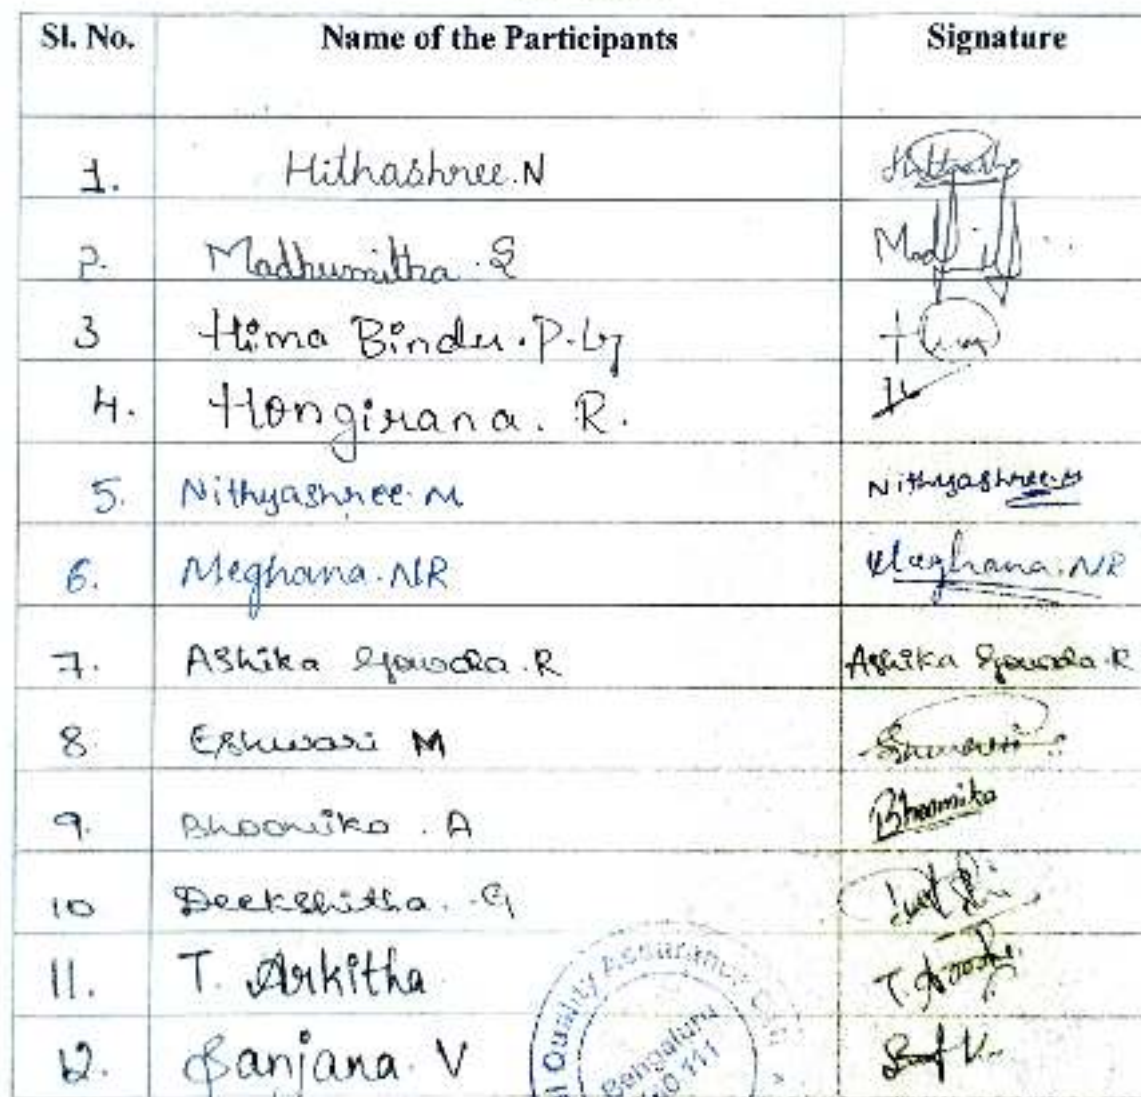 Sl. No. Name of the Participants Signature
1. Hithashree.N
2. Madhumitha.S Mad
3 Hima Bindu.P.G
4. Hongirana. R. H
5. Nithyashree.M Nithyashree.M
6. Meghana.NR Meghana.NR
7. Ashika Gowda.R Ashika Gowda.R
8 Eshwari M
9. Bhoomika . A Bhoomika
10 Deekshitha. G
11. T. Arkitha T.
12. Sanjana. V
Quality Assurance
Bengaluru